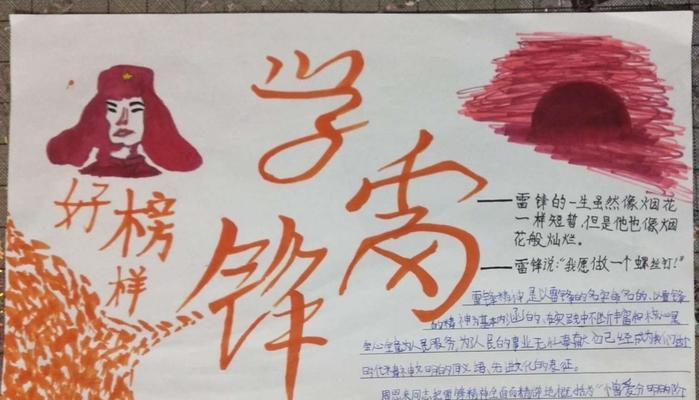 学雷锋
好榜样
——雷锋的一生虽然像烟花
一样短暂,但是他也像烟
花般灿烂。
——雷锋说:“我愿做一个螺丝钉!”
雷锋精神是以雷锋的名字命名的、以雷锋
的精神为基本内涵的、在实践中不断丰富和
全心全意为人民服务,为人民的事业无私奉献 已经成为我们
时代精神文明的同义语、先进文化的表征。
周恩来同志把雷锋精神全面而精辟地概括为“憎爱分明的阶